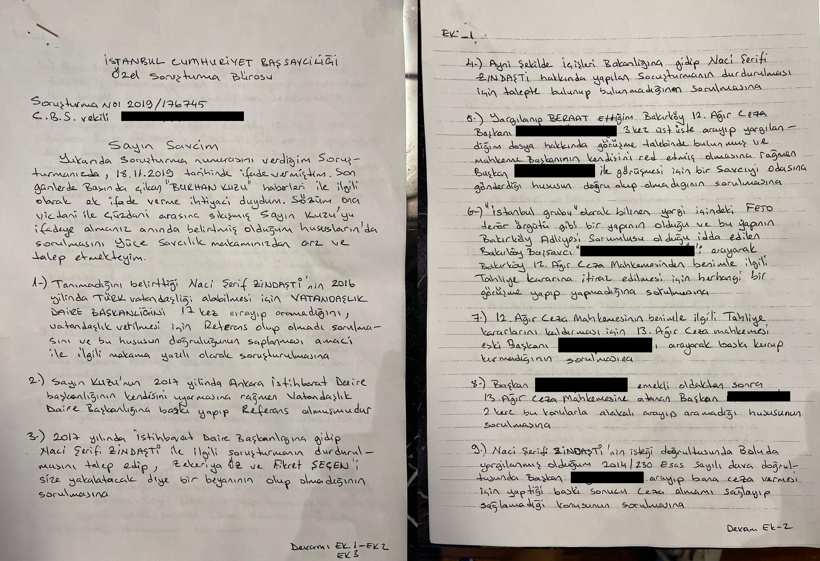 İSTANBUL CUMHURİYET BAŞSAVCILIĞI
Özel Soruşturma Bürosu
Soruşturma NO: 2019/176745
C.B.S. vekili
Sayın Savcım
Yukarıda soruşturma numarasını verdiğim Soruş-
turmanızda, 18.11.2019 tarihinde ifade vermiştim. Son
günlerde Basında çıkan "BURHAN KUZU" haberleri ile ilgili
olarak ek ifade verme ihtiyacı duydum. Sözüm ona
vicdanı ile Cüzdanı arasına sıkışmış Sayın Kuzu'yu
ifadeye almanız anında belirtmiş olduğum hususların'da
sorulmasını Yüce Savcılık makamınızdan arz ve
talep etmekteyim.
1-) Tanımadığını belirttiği Naci Şerif ZİNDAŞTİ'nin 2016
yılında TÜRK vatandaşlığı alabilmesi için VATANDAŞLIK
DAİRE BAŞKANLIĞINI 17 kez arayıp aramadığını,
vatandaşlık verilmesi için Referans olup olmadı sorulma-
sını ve bu hususun doğruluğunun saplanması amacı
ile ilgili makama yazılı olarak soruşturulmasına
2-) Sayın Kuzu'nun 2017 yılında Ankara istihbarat Daire
başkanlığının kendisini uyarmasına rağmen Vatandaşlık
Daire Başkanlığına baskı yapıp Referans olmuşmudur
3-) 2017 yılında istihbarat Daire Başkanlığına gidip
Naci Şerifi ZİNDAŞTİ ile ilgili soruşturmanın durdurul-
masını talep edip, Zekeriya ÖZ ve Fikret SEÇEN'i
size yakalatacak diye bir beyanının olup olmadığının
sorulmasına
Devamı EK.1-EK2
EK3
EK-1
4-) Ayni Şekilde İçişleri Bakanlığına gidip Naci Şerifi
ZİNDAŞTİ hakkında yapılan Soruşturmanın durdurulması
için talepte bulunup bulunmadığının sorulmasına
5-) Yargılanıp BERAAT ettiğim Bakırköy 12. Ağır Ceza
Başkanı 3 kez üst üste arayıp yargılan-
dığım dosya hakkında görüşme talebinde bulunmuş ve
mahkeme Başkanının kendisini red etmiş olmasına rağmen
Başkan ile görüşmesi için bir Savcıyı odasına
gönderdiği hususun doğru olup olmadığının sorulmasına
6-) "istanbul grubu" olarak bilinen yargı içindeki FETO
terör örgütü gibi bir yapının olduğu ve bu yapının
Bakırköy Adliyesi Sorumlusu olduğu idda edilen
Bakırköy Başsavcı " " arayarak
Bakırköy 12. Ağır Ceza Mahkemesinden benimle ilgili
Tahliye kararına itiraz edilmesi için herhangi bir
görüşme yapıp yapmadığına sorulmasına
7-) 12. Ağır Ceza Mahkemesinin benimle ilgili Tahliye
kararlarını kaldırması için 13. Ağır Ceza mahkemesi
eski Başkanı , arayarak baskı kurup
kurmadığının sorulmasına
8-) Başkan emekli olduktan sonra
13. Ağır Ceza Mahkemesine atanan Başkan
2 kere bu konularla alakalı arayıp aramadığı hususunun
sorulmasına
9-) Naci Şerifi ZİNDAŞTİ'nin isteği doğrultusunda Boluda
yargılanmış olduğum 2014/230 Esas sayılı dava doğrul-
tusunda Başkan arayıp bana ceza vermesi
için yaptığı baskı sonucu Ceza almamı sağlayıp
sağlamadığı konusunun sorulmasına
Devam EK-2